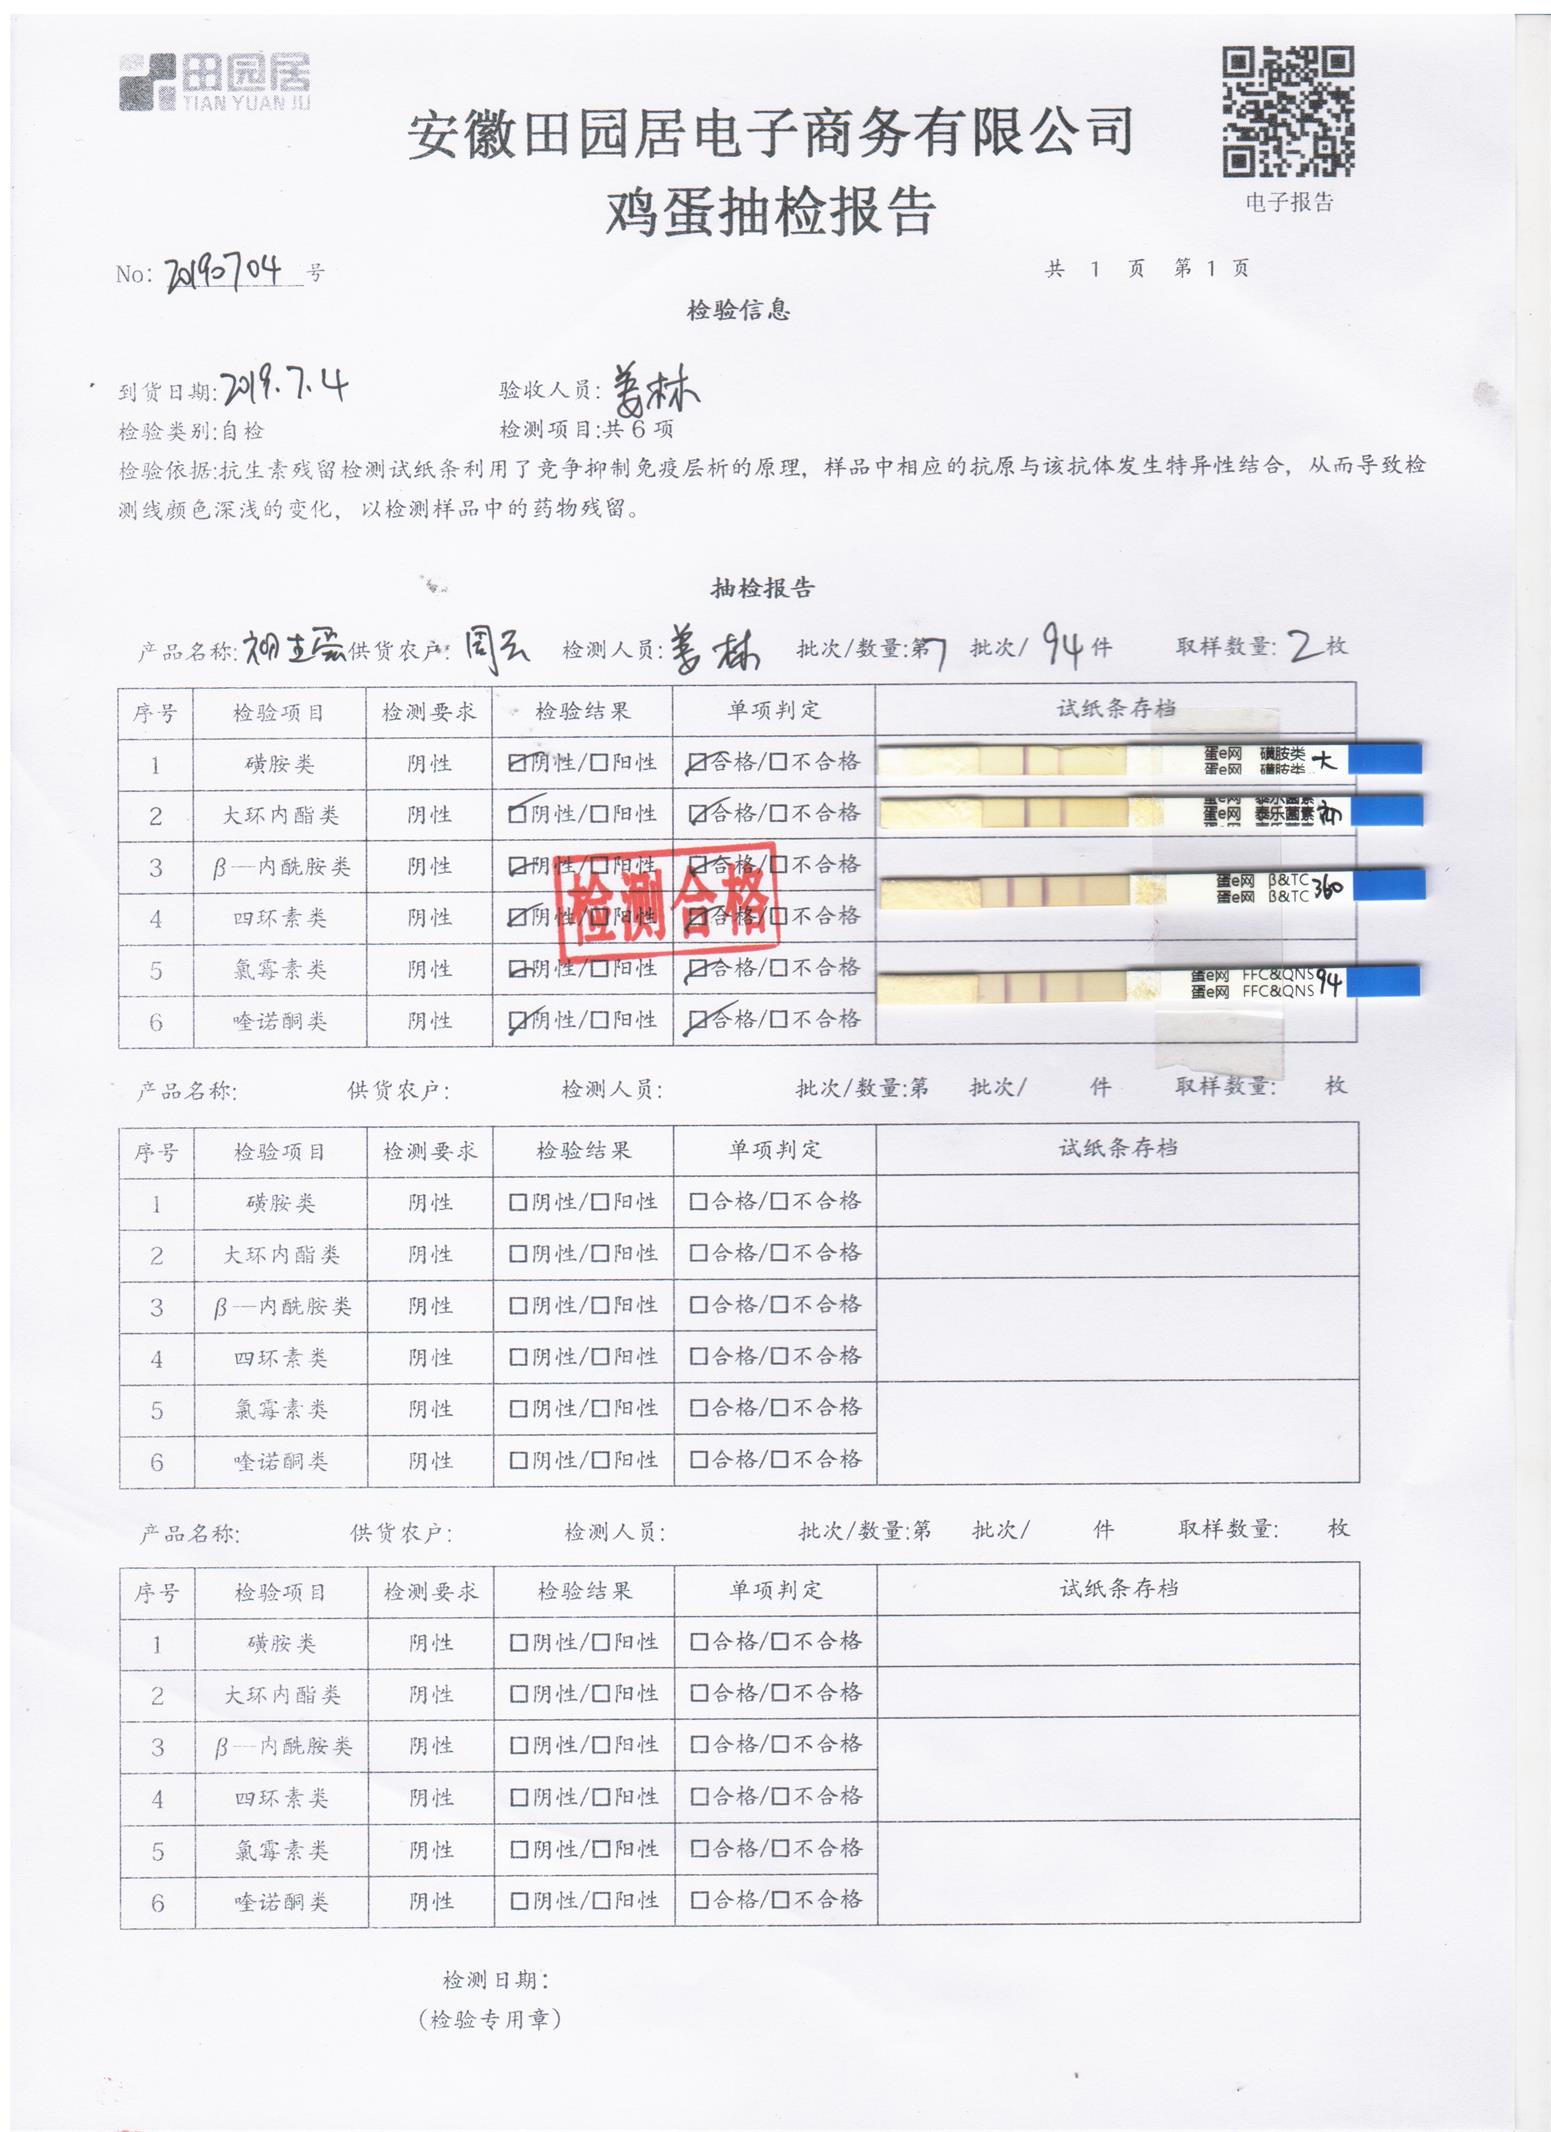 田园居
TIAN YUAN JU
安徽田园居电子商务有限公司
鸡蛋抽检报告
电子报告
No: 20190704 号
共 1 页 第 1 页
检验信息
到货日期:2019.7.4 验收人员: 姜林
检验类别:自检 检测项目:共 6 项
检验依据:抗生素残留检测试纸条利用了竞争抑制免疫层析的原理，样品中相应的抗原与该抗体发生特异性结合，从而导致检
测线颜色深浅的变化，以检测样品中的药物残留。
抽检报告
产品名称:初生蛋 供货农户: 周云 检测人员: 姜林 批次/数量:第7 批次/ 94 件 取样数量: 2 枚
序号 检验项目 检测要求 检验结果 单项判定 试纸条存档
1 磺胺类 阴性 ☑阴性/☐阳性 ☑合格/☐不合格 蛋e网 磺胺类 大
蛋e网 磺胺类
2 大环内酯类 阴性 ☑阴性/☐阳性 ☑合格/☐不合格 蛋e网 泰乐菌素
蛋e网 泰乐菌素 初
3 β—内酰胺类 阴性 ☑阴性/☐阳性 ☑合格/☐不合格 蛋e网 β&TC 360
蛋e网 β&TC
4 四环素类 阴性 ☑阴性/☐阳性 ☑合格/☐不合格
检测合格
5 氯霉素类 阴性 ☑阴性/☐阳性 ☑合格/☐不合格 蛋e网 FFC&QNS 94
蛋e网 FFC&QNS
6 喹诺酮类 阴性 ☑阴性/☐阳性 ☑合格/☐不合格
产品名称: 供货农户: 检测人员: 批次/数量:第 批次/ 件 取样数量: 枚
序号 检验项目 检测要求 检验结果 单项判定 试纸条存档
1 磺胺类 阴性 ☐阴性/☐阳性 ☐合格/☐不合格
2 大环内酯类 阴性 ☐阴性/☐阳性 ☐合格/☐不合格
3 β—内酰胺类 阴性 ☐阴性/☐阳性 ☐合格/☐不合格
4 四环素类 阴性 ☐阴性/☐阳性 ☐合格/☐不合格
5 氯霉素类 阴性 ☐阴性/☐阳性 ☐合格/☐不合格
6 喹诺酮类 阴性 ☐阴性/☐阳性 ☐合格/☐不合格
产品名称: 供货农户: 检测人员: 批次/数量:第 批次/ 件 取样数量: 枚
序号 检验项目 检测要求 检验结果 单项判定 试纸条存档
1 磺胺类 阴性 ☐阴性/☐阳性 ☐合格/☐不合格
2 大环内酯类 阴性 ☐阴性/☐阳性 ☐合格/☐不合格
3 β—内酰胺类 阴性 ☐阴性/☐阳性 ☐合格/☐不合格
4 四环素类 阴性 ☐阴性/☐阳性 ☐合格/☐不合格
5 氯霉素类 阴性 ☐阴性/☐阳性 ☐合格/☐不合格
6 喹诺酮类 阴性 ☐阴性/☐阳性 ☐合格/☐不合格
检测日期:
(检验专用章)